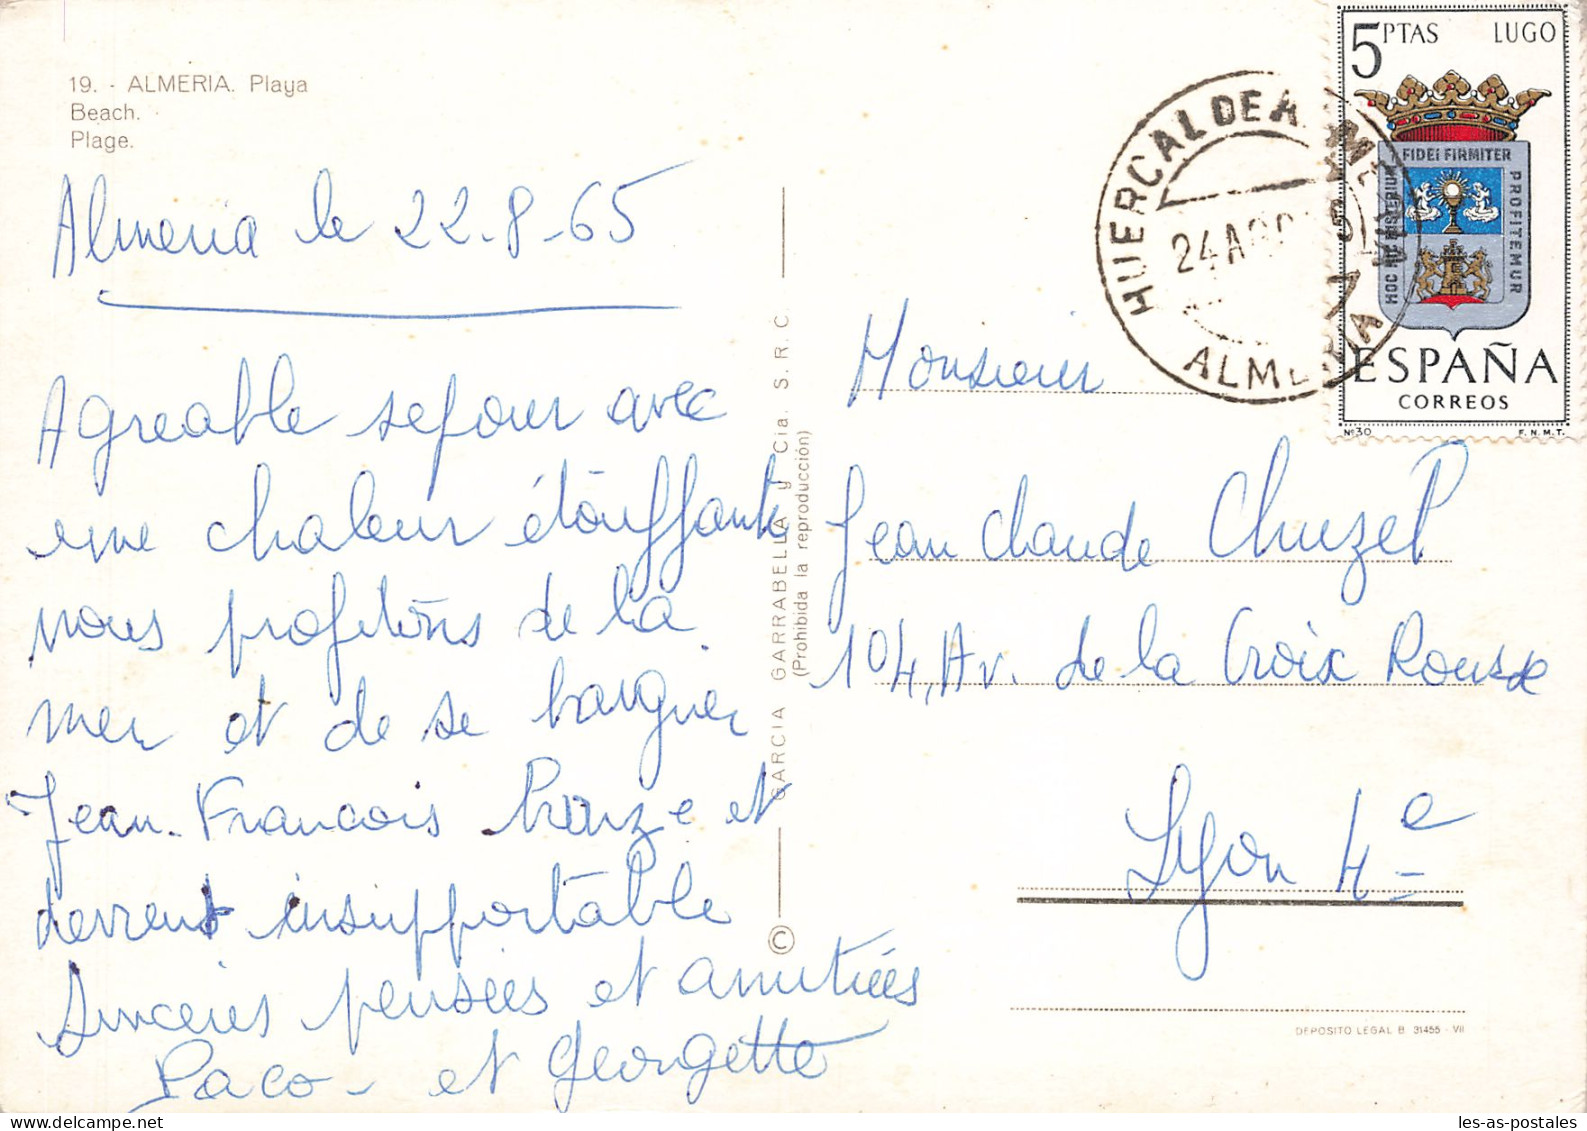 19. - ALMERIA. Playa
Beach.
Plage.
Almeria le 22-8-65
Agreable sejour avec
une chaleur étouffante
nous profitons de la
mer et de se baigner
Jean-Francois bronze et
devient insupportable
Sincères pensées et amitiées
Paco - et Georgette
GARCIA GARRABELLA y Cia. S.R.C.
(Prohibida la reproducción)
©
5 PTAS LUGO
FIDEI FIRMITER
HOC HIC MISTERIUM
PROFITEMUR
ESPAÑA
CORREOS
Nº30 F.N.M.T.
HUERCAL DE ALMERIA
24 AGO
ALMERIA
Monsieur
Jean Claude Chuzel
104, Av. de la Croix Rousse
Lyon 4e
DEPOSITO LEGAL B. 31455 - VII
les-as-postales
delcampe.net